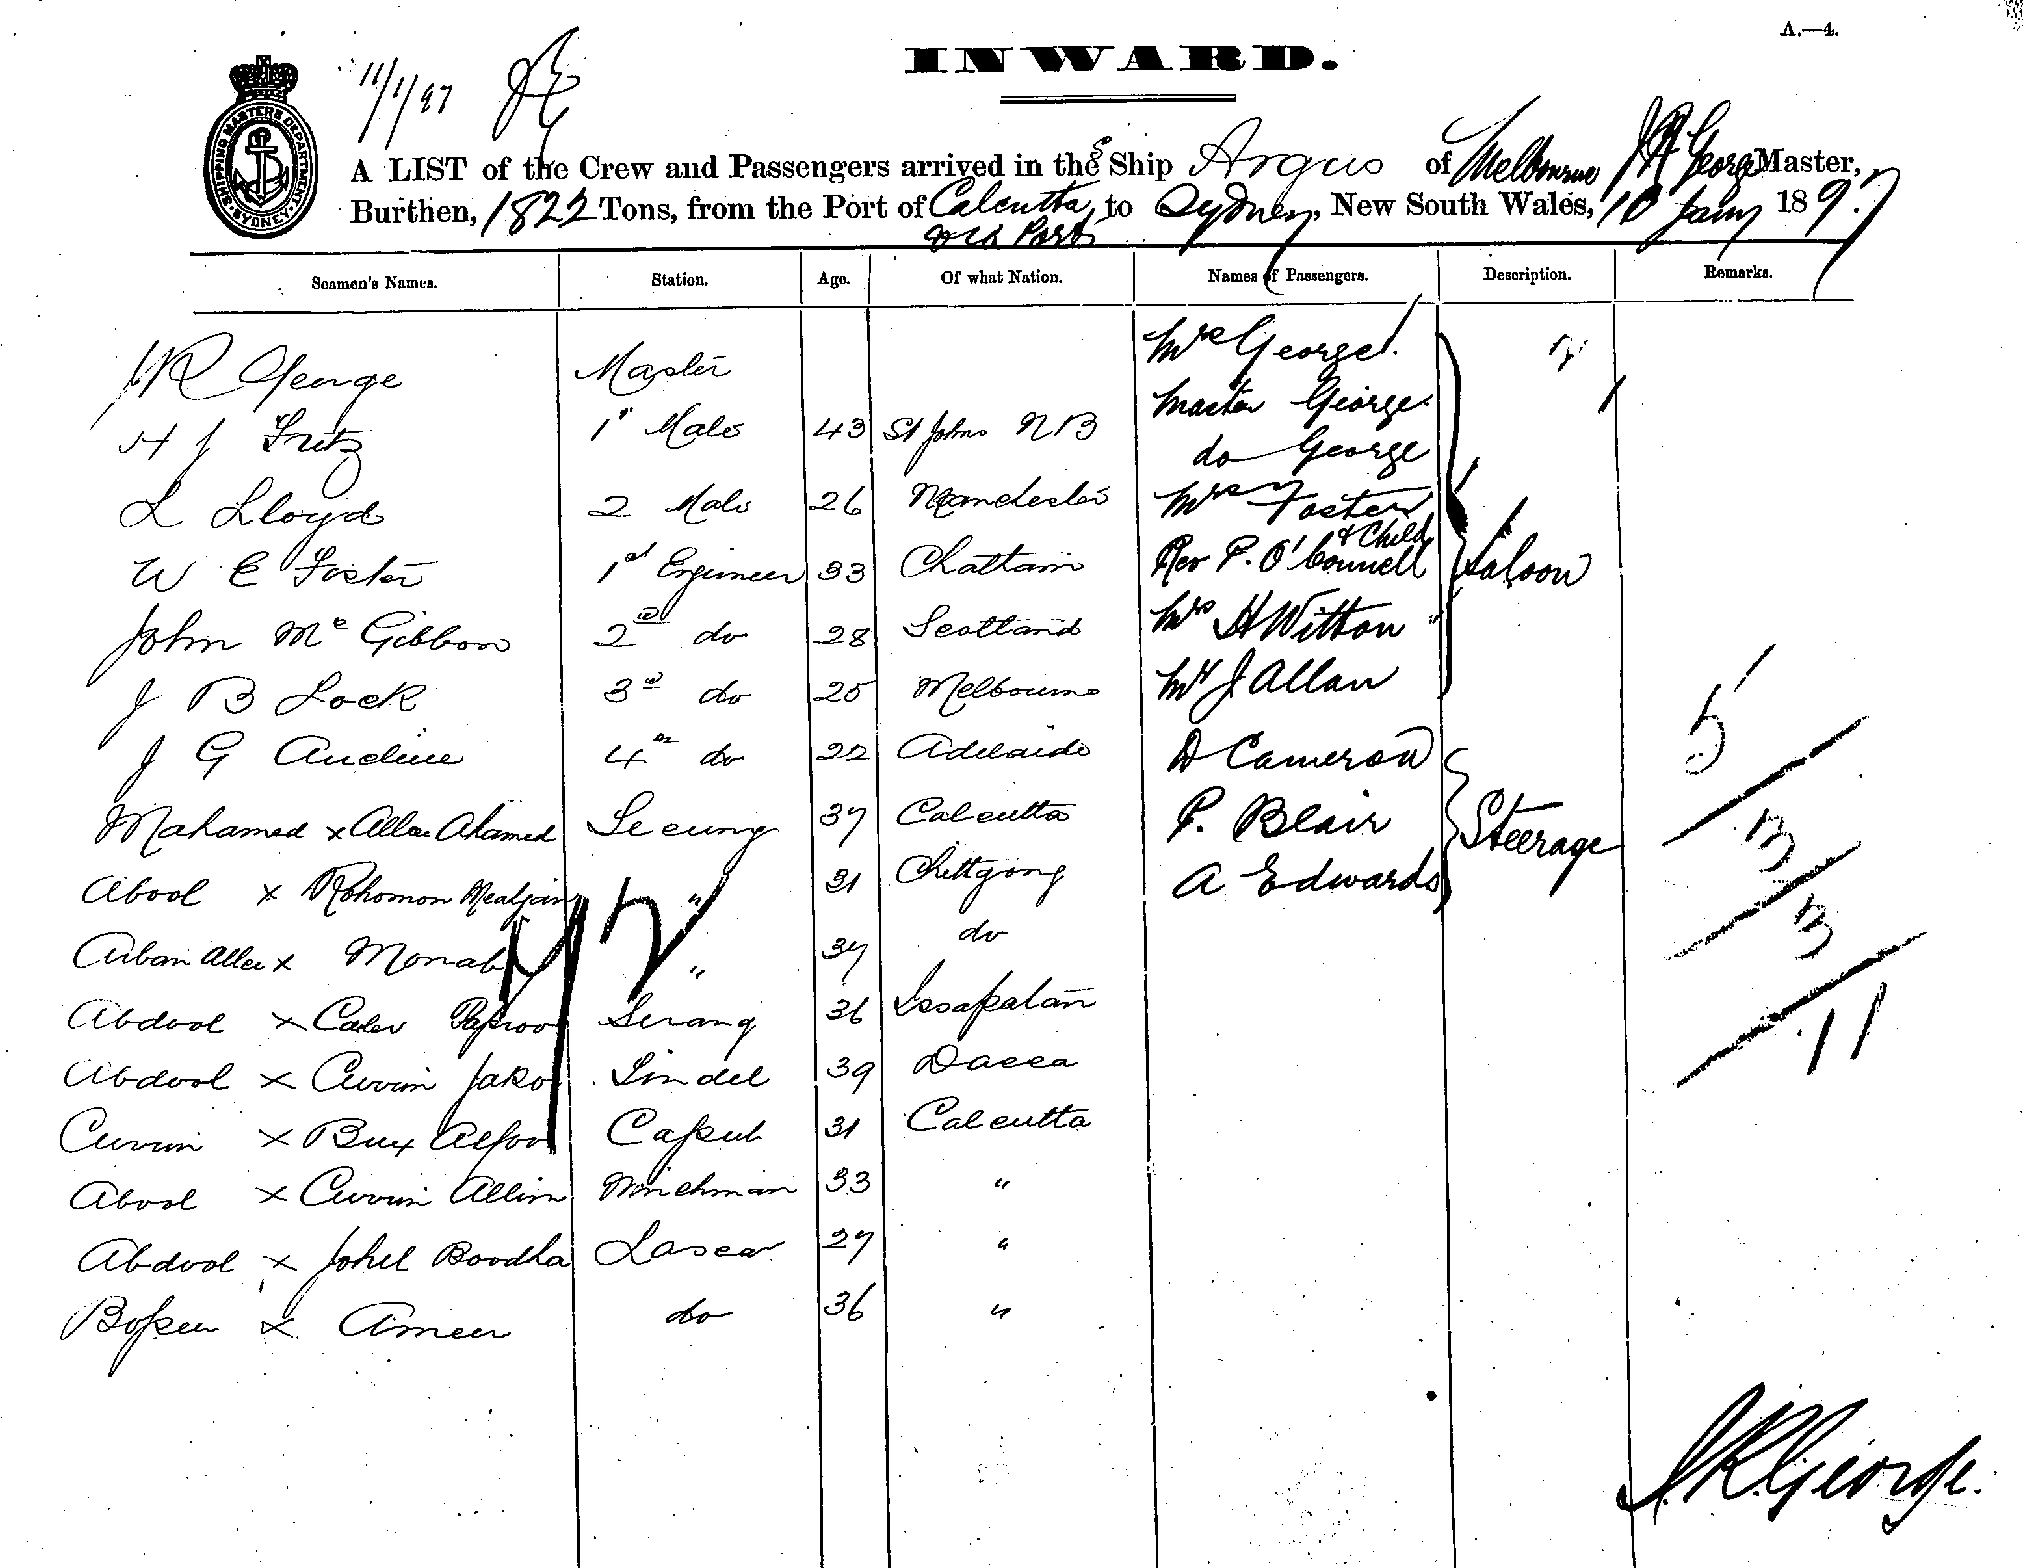 A.—4.
INWARD.
SHIPPING MASTERS DEPARTMENT. SYDNEY.
11/1/97
A LIST of the Crew and Passengers arrived in the S Ship Argus of Melbourne J R George Master,
Burthen, 1822 Tons, from the Port of Calcutta to Sydney, New South Wales, 10 Jany 1897
via Ports
Seamen's Names. Station. Age. Of what Nation. Names of Passengers. Description. Remarks.
J R George Master Mrs George
Master George
H J Fritz 1st Mate 43 St Johns NB
do George
L Lloyd 2 Mate 26 Manchester Mrs Foster
& Child
W E Foster 1st Engineer 33 Chattam Rev P. O'Connell Saloon
John Mc Gibbon 2nd do 28 Scotland Mrs H Witton
J B Lock 3rd do 25 Melbourne Mr J Allan 5
J G 4th do 22 Adelaide D Cameron
Mahamed x Allee Ahamed 37 Calcutta P. Blair Steerage 3
Abool x Rohomon 31 Chittgong A Edwards
Allee x " 37 do 3
Abdool x Serang 36 11
Abdool x Currim Tindel 39 Dacca
Currim x Bux 31 Calcutta
Abool x Currim Allim Winchman 33 "
Abdool x Boodha Lascar 27 "
x Ameer do 36 "
J.R. George.